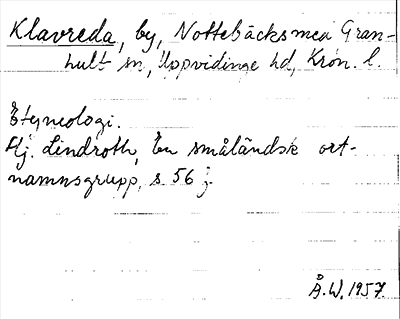 Klavreda, by, Nottebäcksmed Gran-
hult sn, Uppvidinge hd, Kron. l.
Etymologi.
Hj. Lindroth, En småländsk ort-
namnsgrupp, s. 56 f.
Å.W. 1957.